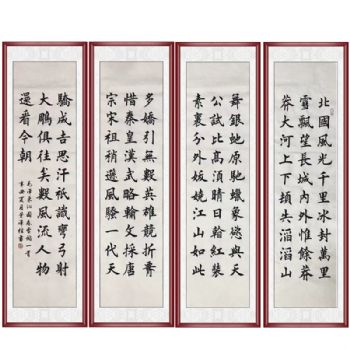 北國風光千里冰封萬里
雪飄望長城內外惟餘莽
莽大河上下頓失滔滔山
舞銀蛇原馳蠟象欲與天
公試比高須晴日看紅裝
素裹分外妖嬈江山如此
多嬌引無數英雄競折腰
惜秦皇漢武略輸文採唐
宗宋祖稍遜風騷一代天
驕成吉思汗祇識彎弓射
大鵰俱往矣數風流人物
還看今朝
毛澤東沁園春雪詞一首